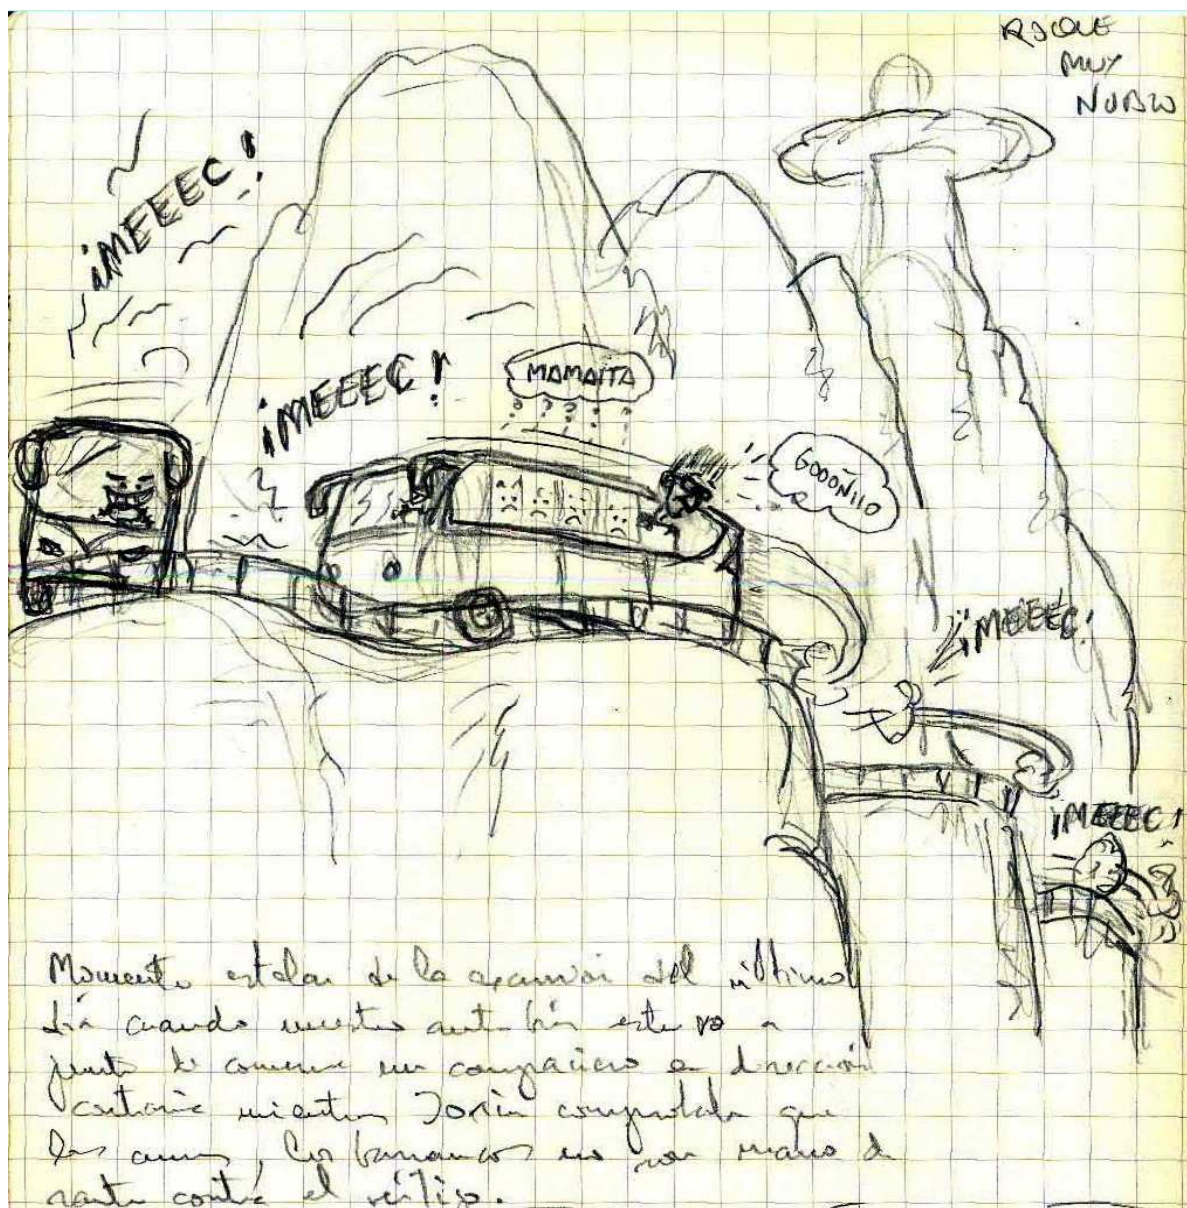 ROQUE
MUY
NUBLO
¡MEEEC!
¡MEEEC!
MAMAÍTA
GOOOÑIIO
¡MEEEC!
¡MEEEC!
Momento estelar de la excursión del último
día cuando nuestro autobús estuvo a
punto de comerse un compañero en dirección
contraria mientras comprobaba que
las curvas, los barrancos no son mano de
santo contra el vértigo.